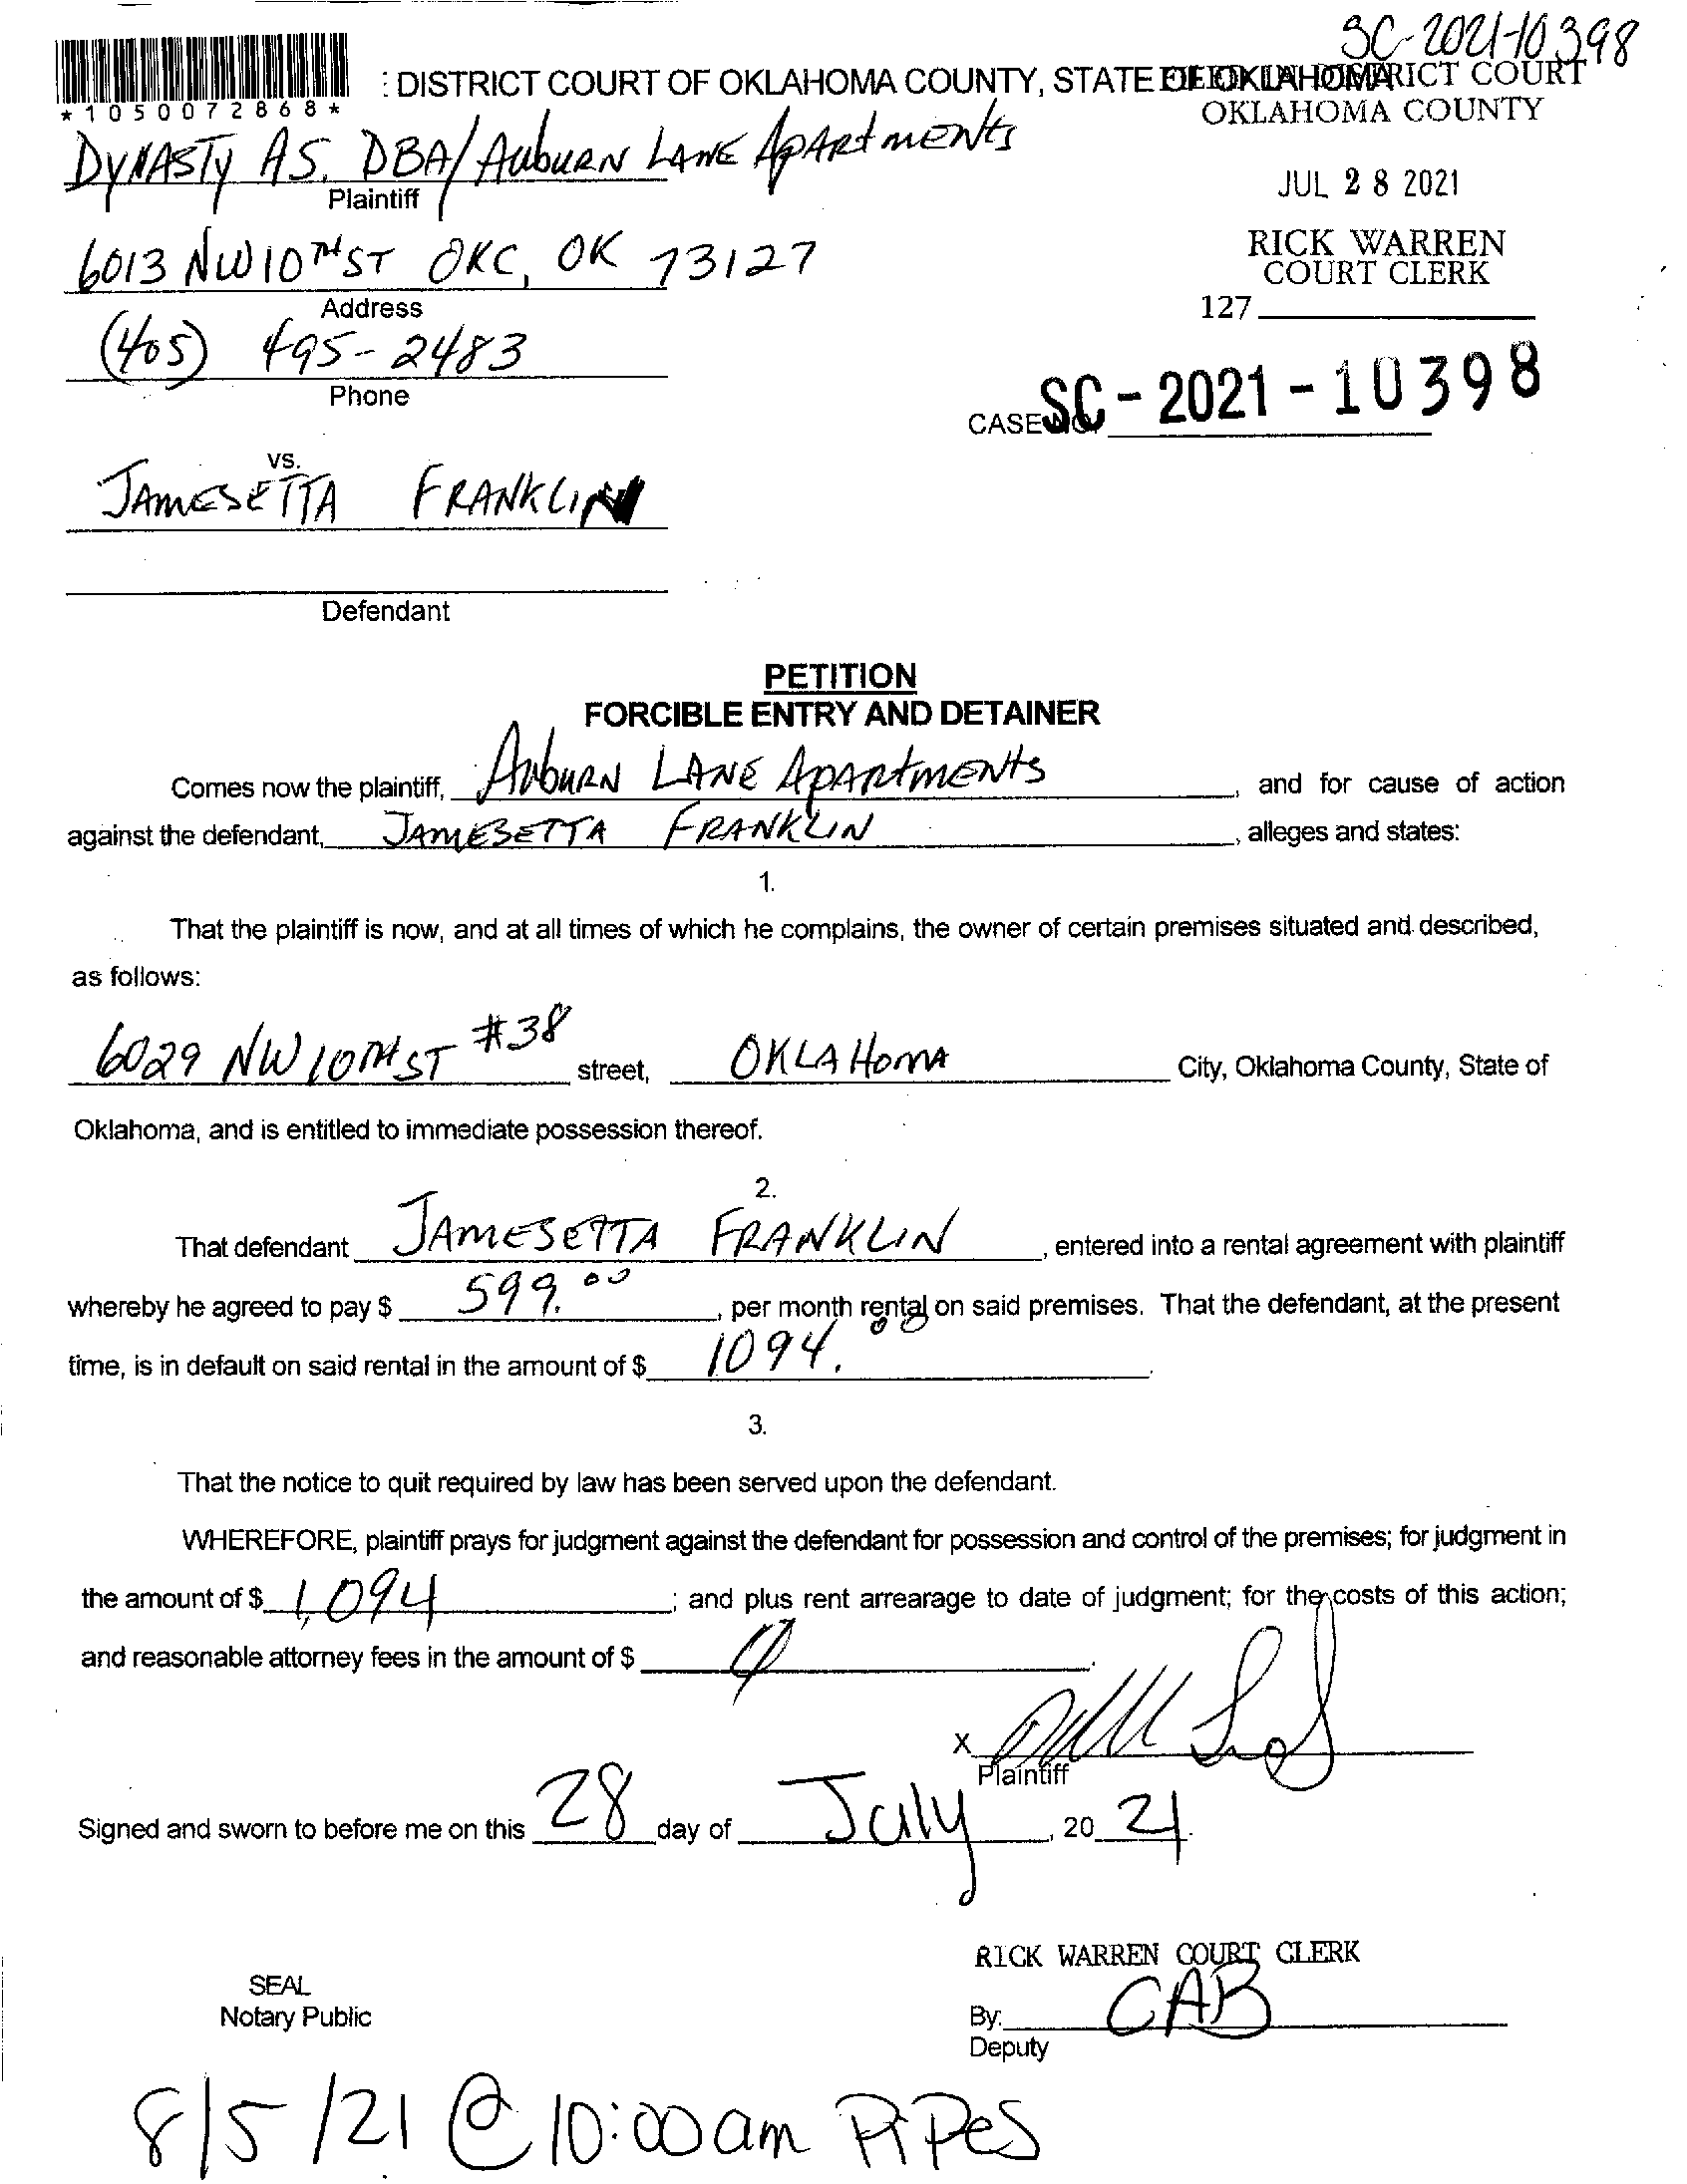 SC-2021-10398
: DISTRICT COURT OF OKLAHOMA COUNTY, STATE OF OKLAHOMA
FILED IN DISTRICT COURT
OKLAHOMA COUNTY
*1050072868*
DYNASTY AS. DBA/ AUBURN LANE APARTMENTS
Plaintiff
JUL 28 2021
6013 NW 10TH ST OKC, OK 73127
Address
RICK WARREN
COURT CLERK
127
(405) 495-2483
Phone
CASE NO. SC-2021-10398
vs.
JAMESETTA FRANKLIN
Defendant
PETITION
FORCIBLE ENTRY AND DETAINER
Comes now the plaintiff, AUBURN LANE APARTMENTS, and for cause of action
against the defendant, JAMESETTA FRANKLIN, alleges and states:
1.
That the plaintiff is now, and at all times of which he complains, the owner of certain premises situated and described,
as follows:
6029 NW 10TH ST #38 street, OKLAHOMA City, Oklahoma County, State of
Oklahoma, and is entitled to immediate possession thereof.
2.
That defendant JAMESETTA FRANKLIN, entered into a rental agreement with plaintiff
whereby he agreed to pay $ 599.00, per month rental on said premises. That the defendant, at the present
time, is in default on said rental in the amount of $ 1094.00.
3.
That the notice to quit required by law has been served upon the defendant.
WHEREFORE, plaintiff prays for judgment against the defendant for possession and control of the premises; for judgment in
the amount of $ 1,094; and plus rent arrearage to date of judgment; for the costs of this action;
and reasonable attorney fees in the amount of $
X
Plaintiff
Signed and sworn to before me on this 28 day of July, 20 21.
RICK WARREN COURT CLERK
SEAL
Notary Public
By: CAB
Deputy
8/5/21 @ 10:00am PiPes